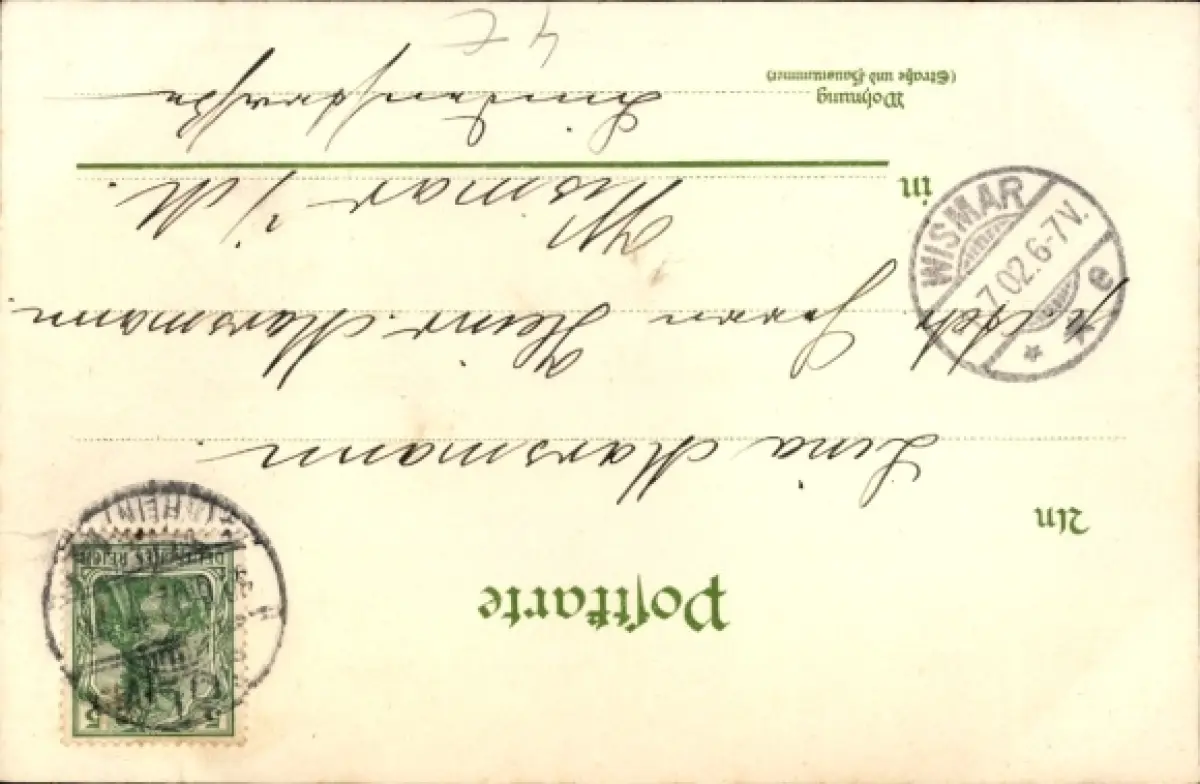 Postkarte
An
Lina Marsmann.
Adr. Herrn Heinr. Marsmann.
in Wismar i/M.
Wohnung
(Straße und Hausnummer)
Lindenstraße
4 E
WISMAR
7.02.6-7V.
e
DEUTSCHES REICH
5 5
(RHEIN)